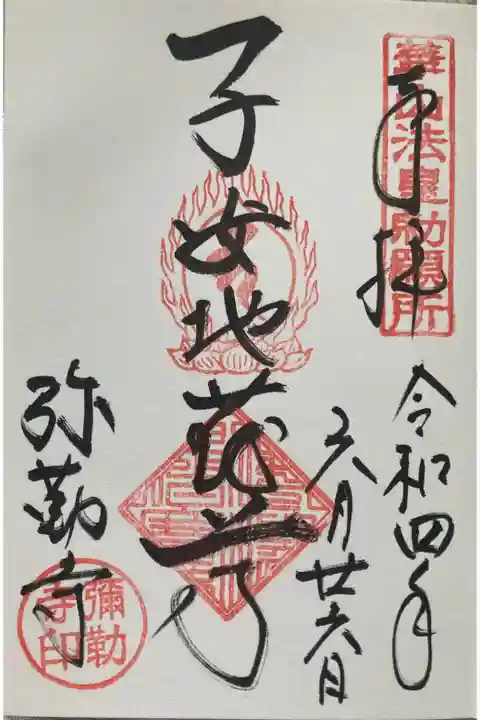 華山法皇勅願所
奉拝
令和四年
六月廿六日
子安地蔵尊
弥勒寺
彌勒寺印